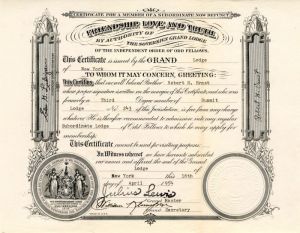 CERTIFICATE FOR A MEMBER OF A SUBORDINATE NOW DEFUNCT
FRIENDSHIP, LOVE AND TRUTH
BY AUTHORITY OF
THE SOVEREIGN GRAND LODGE
OF THE INDEPENDENT ORDER OF ODD FELLOWS,
This Certificate is issued by the GRAND Lodge
New York
TO WHOM IT MAY CONCERN, GREETING:
This Certifies, that our well beloved Brother Robert H. Ernst
whose proper signature is written on the margin of this Certificate, and who was
formerly a Third Degree member of Summit
Lodge of this Jurisdiction, is free from any charge
whatever. He is therefore recommended to admission into any regular
Subordinate Lodge of Odd Fellows to which he may apply for
membership.
This Certificate cannot be used for visiting purposes.
In Witness whereof we have hereunto subscribed
our names and affixed the seal of the Grand
Lodge of
New York this 18th
day of April 1954
Julius Lewis
Grand Master
Grand Secretary